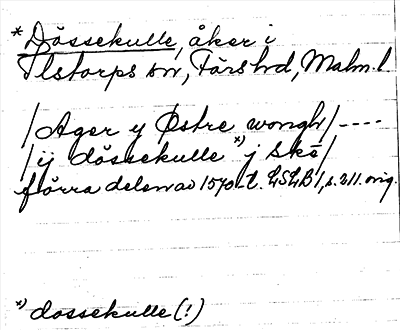 *Dössekulle, åker i
Ilstorps sn, Färs hd, Malm. l
/Ager y Østre wongh/----
/ij dössekulle *) j Skē/
förra delen av 1570-t. LSLB 1, s. 211. orig.
*) dossekulle (!)